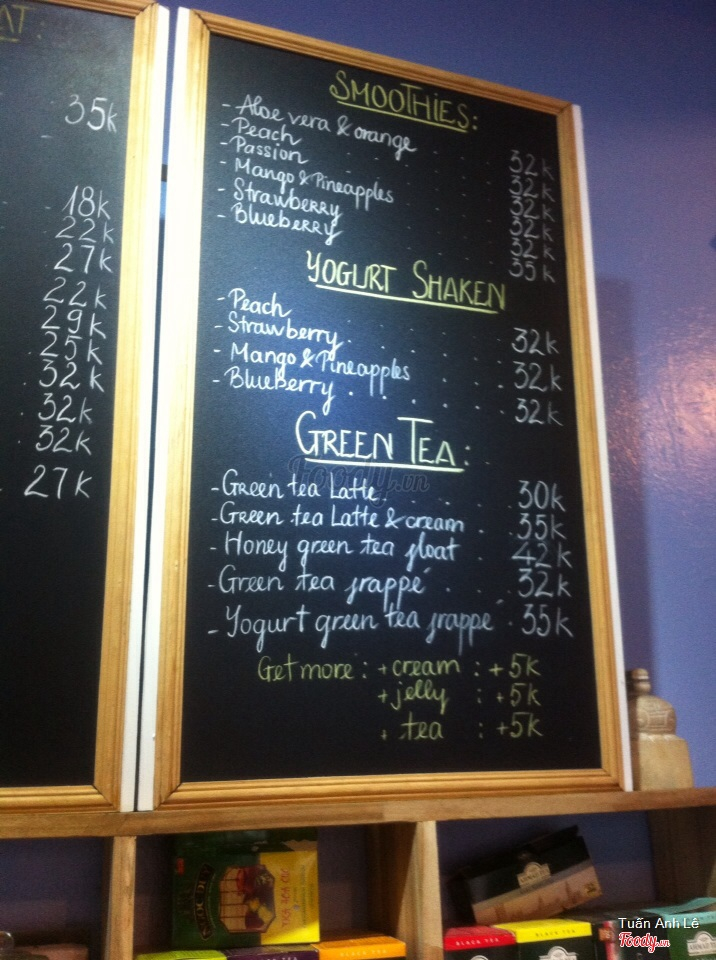 AT:
35k
18k
22k
27k
22k
29k
25k
32k
32k
32k
27k
SMOOTHIES:
- Aloe vera & orange . . . . 32k
- Peach . . . . 32k
- Passion . . . . 32k
- Mango & Pineapples . . . . 32k
- Strawberry . . . . 32k
- Blueberry . . . . 35k
YOGURT SHAKEN
- Peach
- Strawberry . . . . . 32k
- Mango & Pineapples . . . 32k
- BlueBerry . . . . . 32k
GREEN TEA:
- Green tea Latte . . . . 30k
- Green tea Latte & cream . 35k
- Honey green tea float . . 42k
- Green tea frappé . . . 32k
- Yogurt green tea frappé . 35k
Get more : + cream : +5k
+ jelly : +5k
+ tea : +5k
Foody.vn
BLACK TEA
Tuấn Anh Lê
Foody.vn